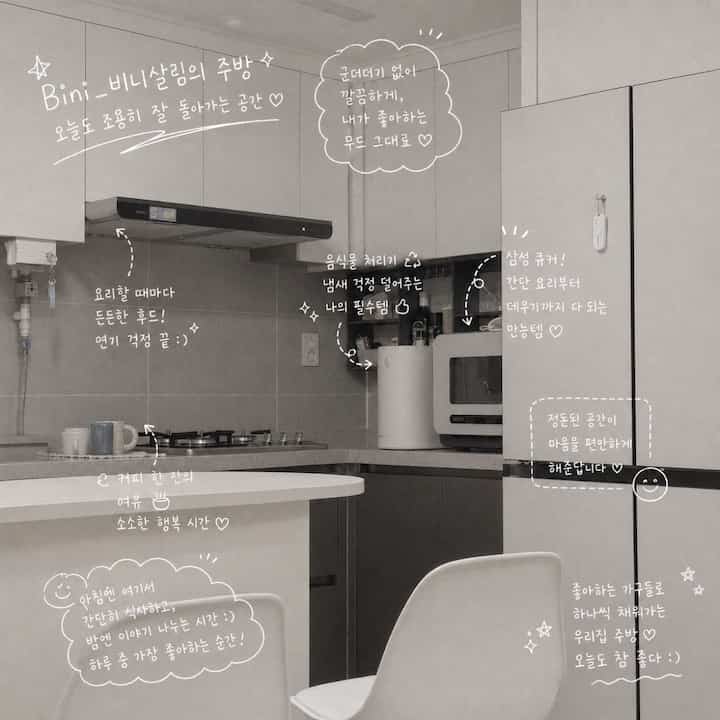 Bini_비니살림의 주방
오늘도 조용히 잘 돌아가는 공간 ♡
군더더기 없이
깔끔하게,
내가 좋아하는
무드 그대로 ♡
요리할 때마다
든든한 후드!
연기 걱정 끝 :)
음식물 처리기
냄새 걱정 덜어주는
나의 필수템
삼성 큐커!
간단 요리부터
데우기까지 다 되는
만능템 ♡
정돈된 공간이
마음을 편안하게
해준답니다 ♡
커피 한 잔의
여유
소소한 행복 시간 ♡
아침엔 여기서
간단히 식사하고,
밤엔 이야기 나누는 시간 :)
하루 중 가장 좋아하는 순간!
좋아하는 가구들로
하나씩 채워가는
우리집 주방 ♡
오늘도 참 좋다 :)